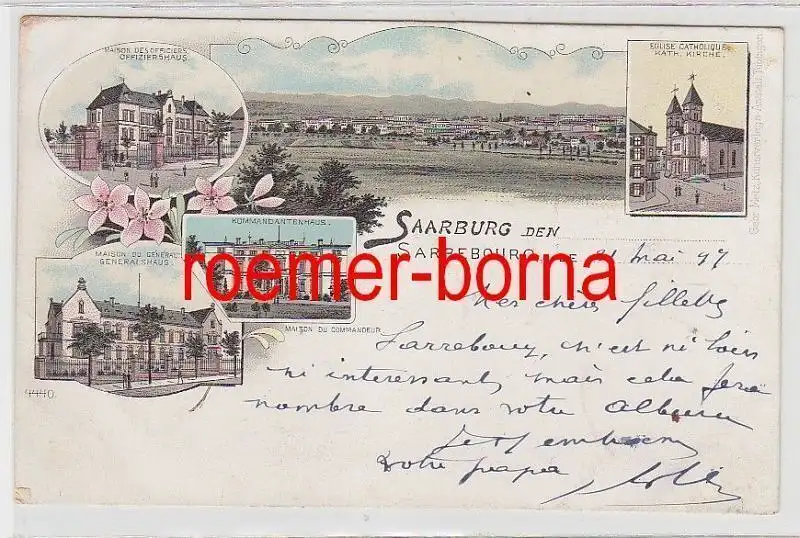 MAISON DES OFFICIERS
OFFIZIERSHAUS.
EGLISE CATHOLIQUE.
KATH. KIRCHE.
KOMMANDANTENHAUS.
MAISON DU GENERAL
GENERALSHAUS.
MAISON DU COMMANDEUR
SAARBURG DEN
SARREBOURG, LE 21 Mai 97
roemer-borna
Mes chères fillettes
Sarrebourg, n'est ni loin
ni intéressant, mais cela fera
nombre dans votre Album
Je
Votre papa
4440.
Gebr. Metz, Kunstverlags-Anstalt, Tübingen